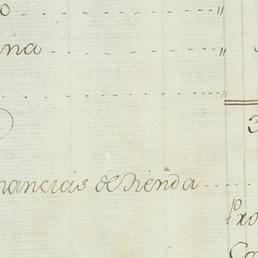 o
ina
3
nancias de tienda
Pro
Ca